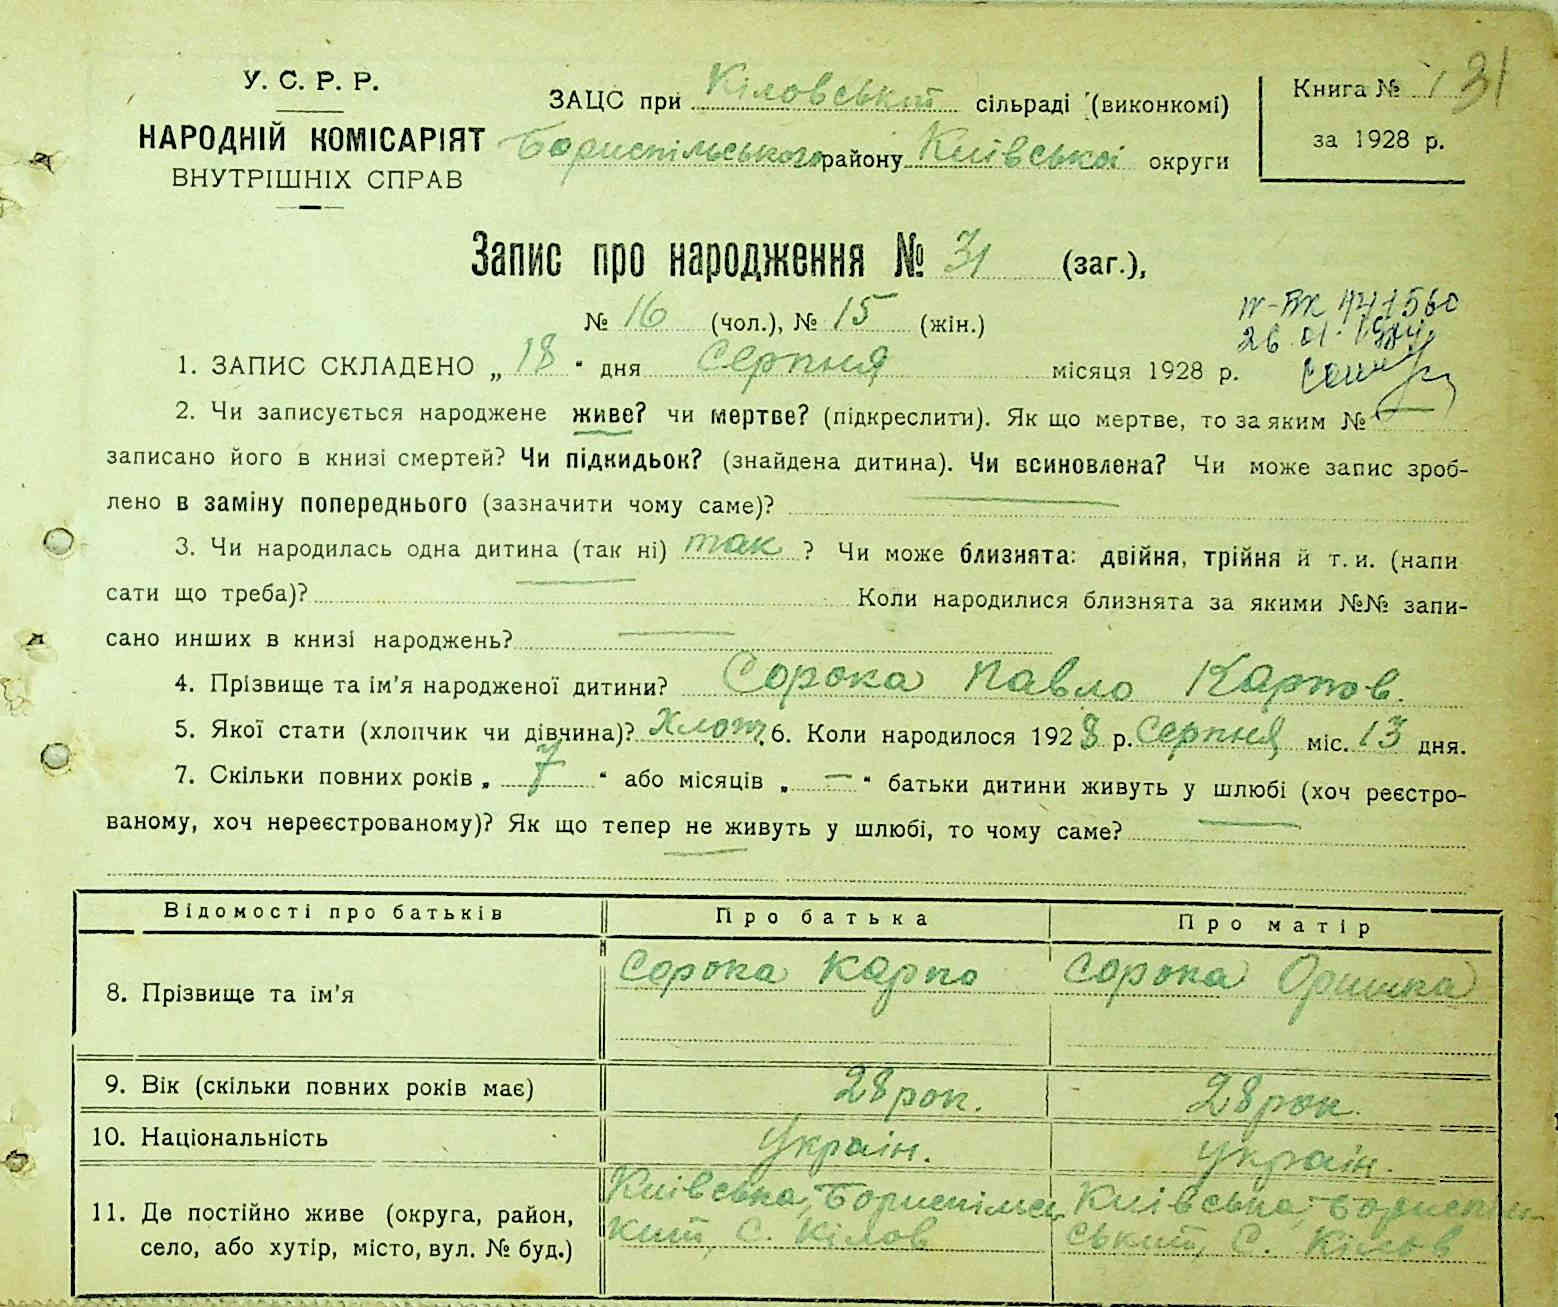 У. С. Р. Р.
НАРОДНІЙ КОМІСАРІЯТ
ВНУТРІШНІХ СПРАВ
ЗАЦС при Кіловській сільраді (виконкомі)
Бориспільського району Київської округи
Книга № 1 31
за 1928 р.
Запис про народження № 31 (заг.),
№ 16 (чол.), № 15 (жін.)
26.01.
1. ЗАПИС СКЛАДЕНО „ 18 “ дня Серпня місяця 1928 р.
2. Чи записується народжене живе? чи мертве? (підкреслити). Як що мертве, то за яким №
записано його в книзі смертей? Чи підкидьок? (знайдена дитина). Чи всиновлена? Чи може запис зроб-
лено в заміну попереднього (зазначити чому саме)? —
3. Чи народилась одна дитина (так ні) так ? Чи може близнята: двійня, трійня й т. и. (напи
сати що треба)? — Коли народилися близнята за якими №№ запи-
сано инших в книзі народжень? —
4. Прізвище та ім'я народженої дитини? Сорока Павло Карпов.
5. Якої стати (хлопчик чи дівчина)? Хлоп. 6. Коли народилося 1928 р. Серпня міс. 13 дня.
7. Скільки повних років „ 7 “ або місяців „ — “ батьки дитини живуть у шлюбі (хоч реєстро-
ваному, хоч нереєстрованому)? Як що тепер не живуть у шлюбі, то чому саме? —
Відомості про батьків Про батька Про матір
8. Прізвище та ім'я Сорока Карпо Сорока Оришка
9. Вік (скільки повних років має) 28 рок. 28 рок.
10. Національність Україн. Україн.
11. Де постійно живе (округа, район, Київська, Бориспільсь Київська, Бориспіль-
село, або хутір, місто, вул. № буд.) кий, С. Кілов ський, С. Кілов